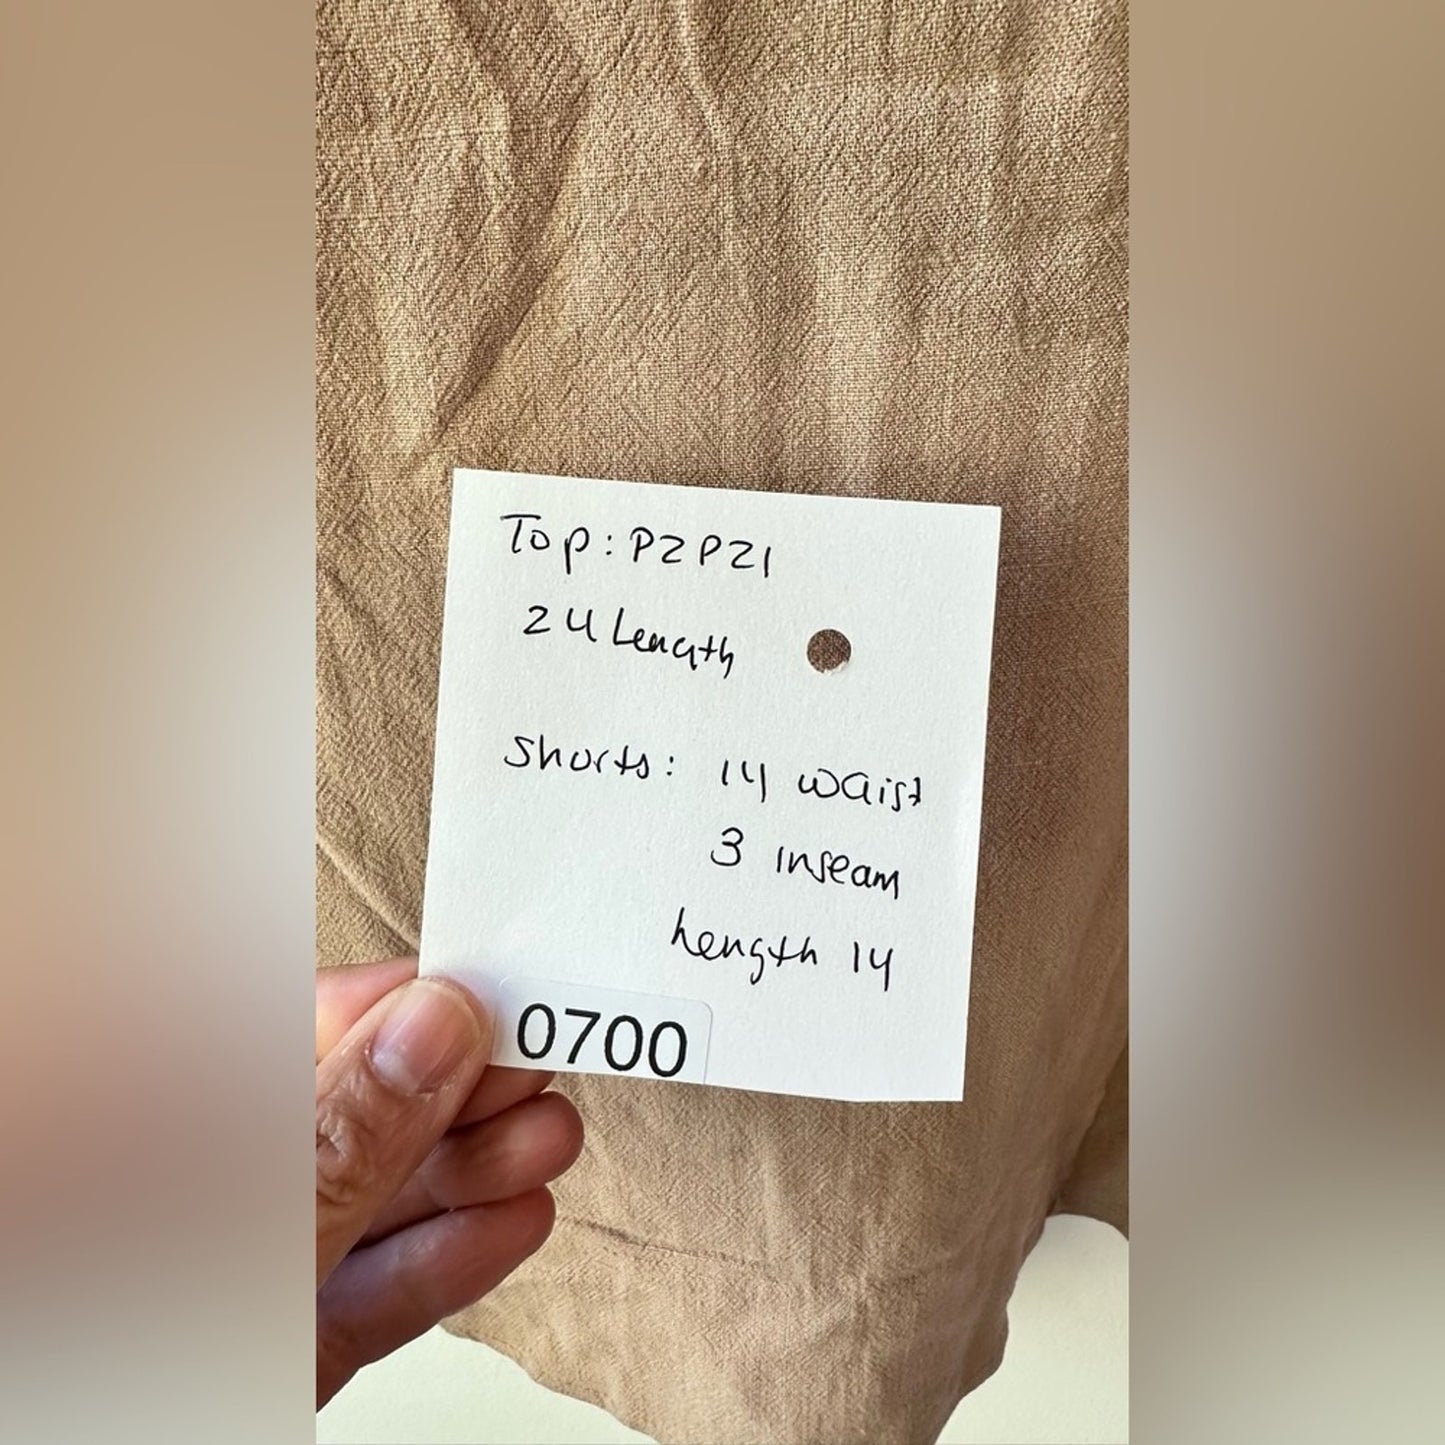 Top: P2P21
24 Length
Shorts: 14 waist
3 inseam
Length 14
0700